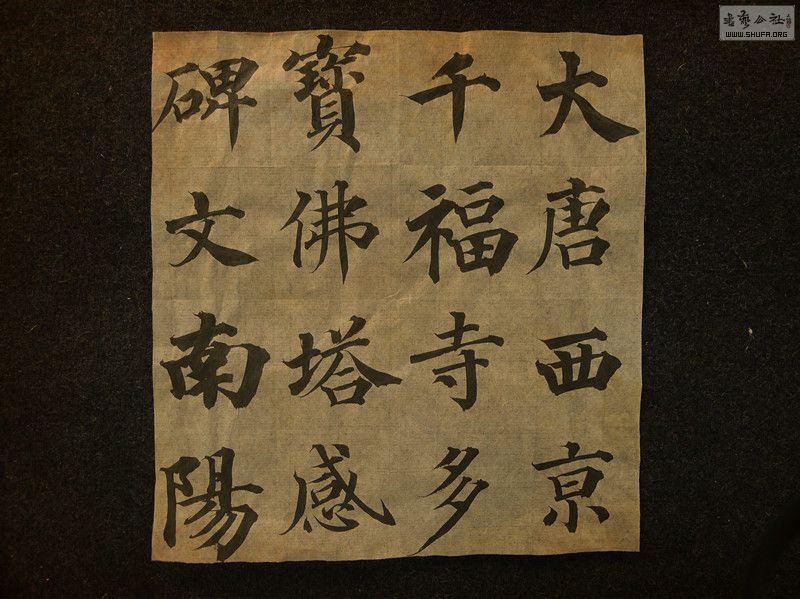 大唐西京
千福寺多
寳佛塔感
碑文南陽
書藝公社
WWW.SHUFA.ORG